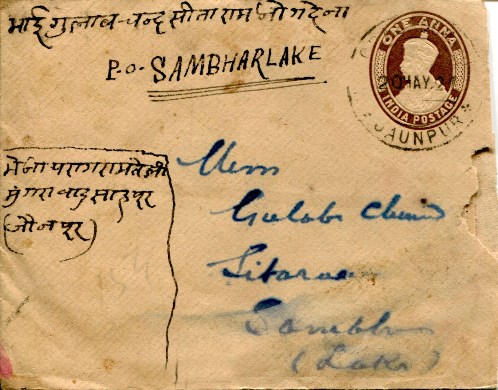 भाई गुलाब-चन्द्र सीताराम जोग देना
P.O. SAMBHARLAKE
ONE ANNA
INDIA POSTAGE
MAY
JAUNPUR
भेजा परागराम तेली
मुंगरा बादसाहपुर
(जौनपुर)
Gulab Chand
Sitaram
Sambhar
(Lake)